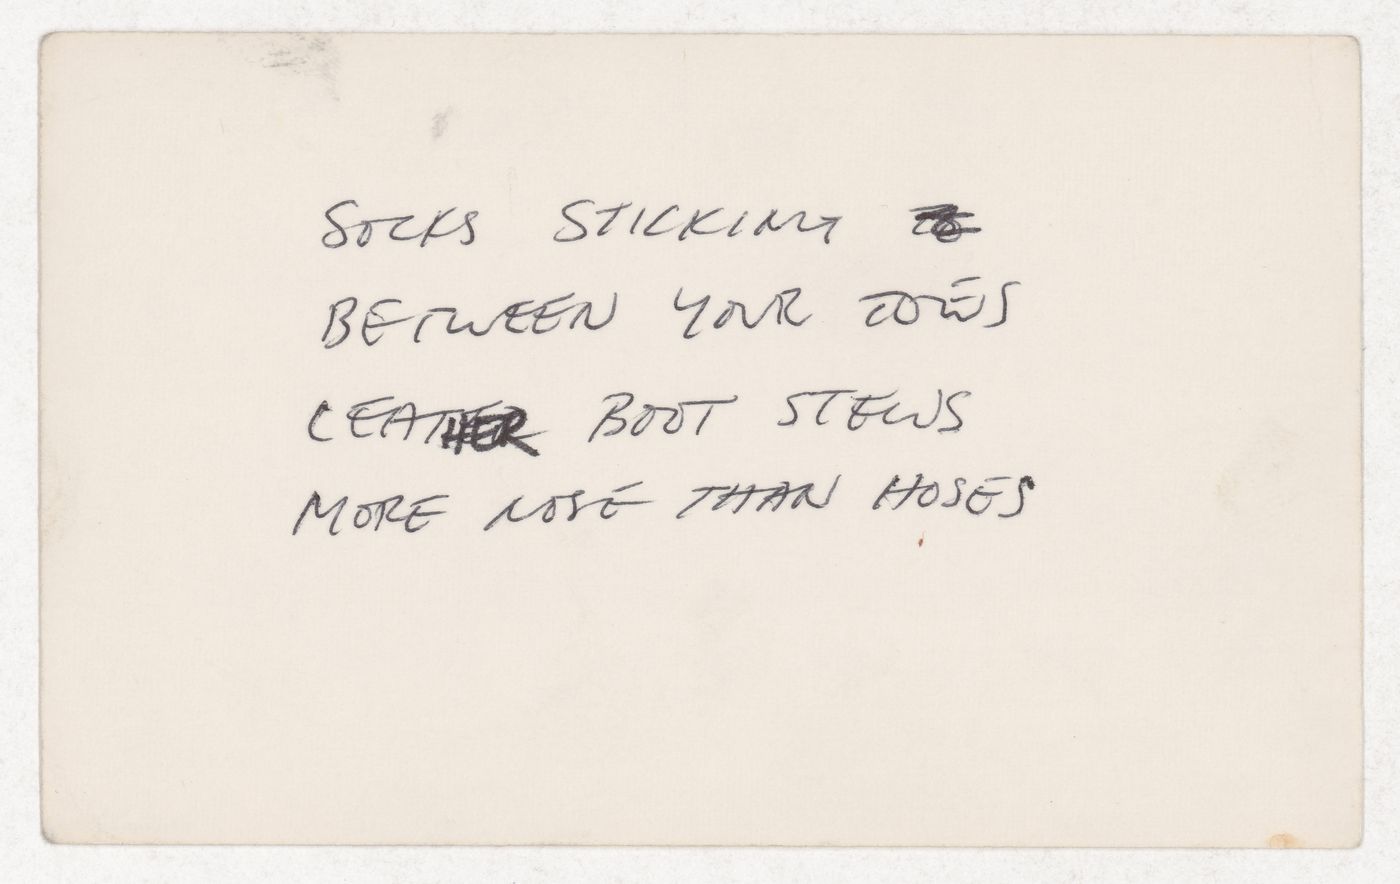 SOCKS STICKING
BETWEEN YOUR TOES
LEATHER BOOT STEWS
MORE NOSE THAN HOSES